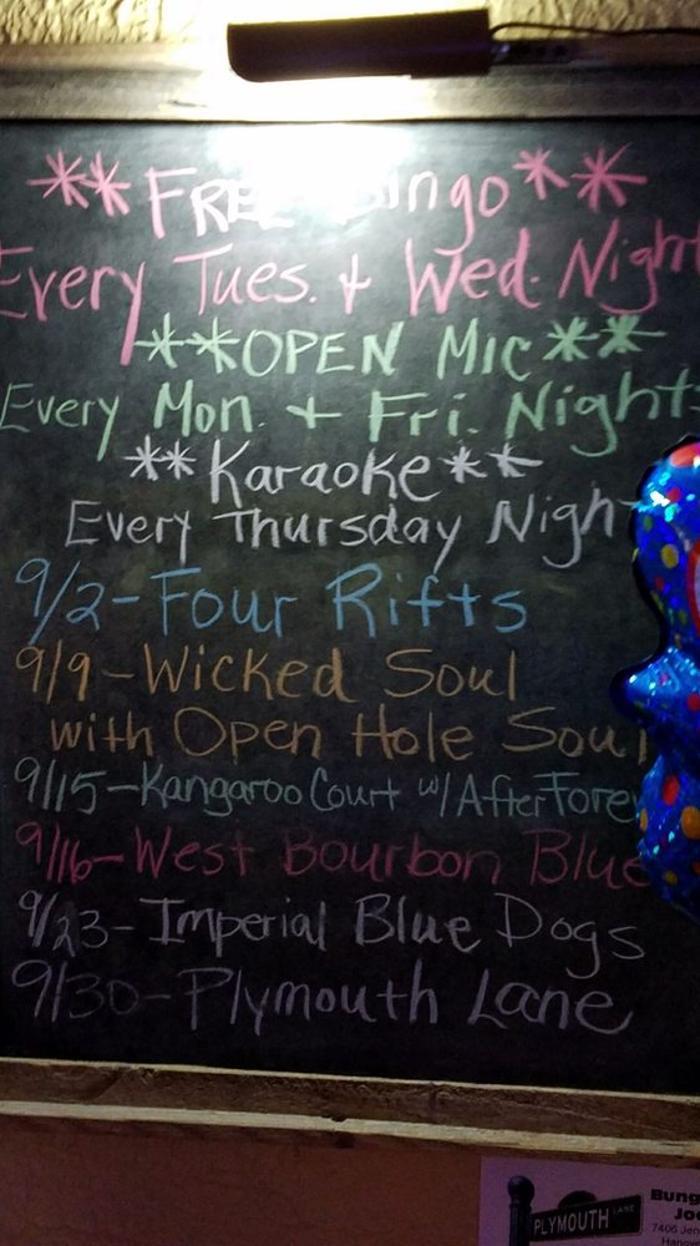 **FREE Bingo**
Every Tues. + Wed. Night
**OPEN MIC**
Every Mon. + Fri. Night
**Karaoke**
Every Thursday Nigh
9/2-Four Rifts
9/9-Wicked Soul
with Open Hole Soul
9/15-Kangaroo Court w/ After Forev
9/16-West Bourbon Blue
9/23-Imperial Blue Dogs
9/30-Plymouth Lane
PLYMOUTH LANE
Bung
Joe
7406 Jen
Hanov